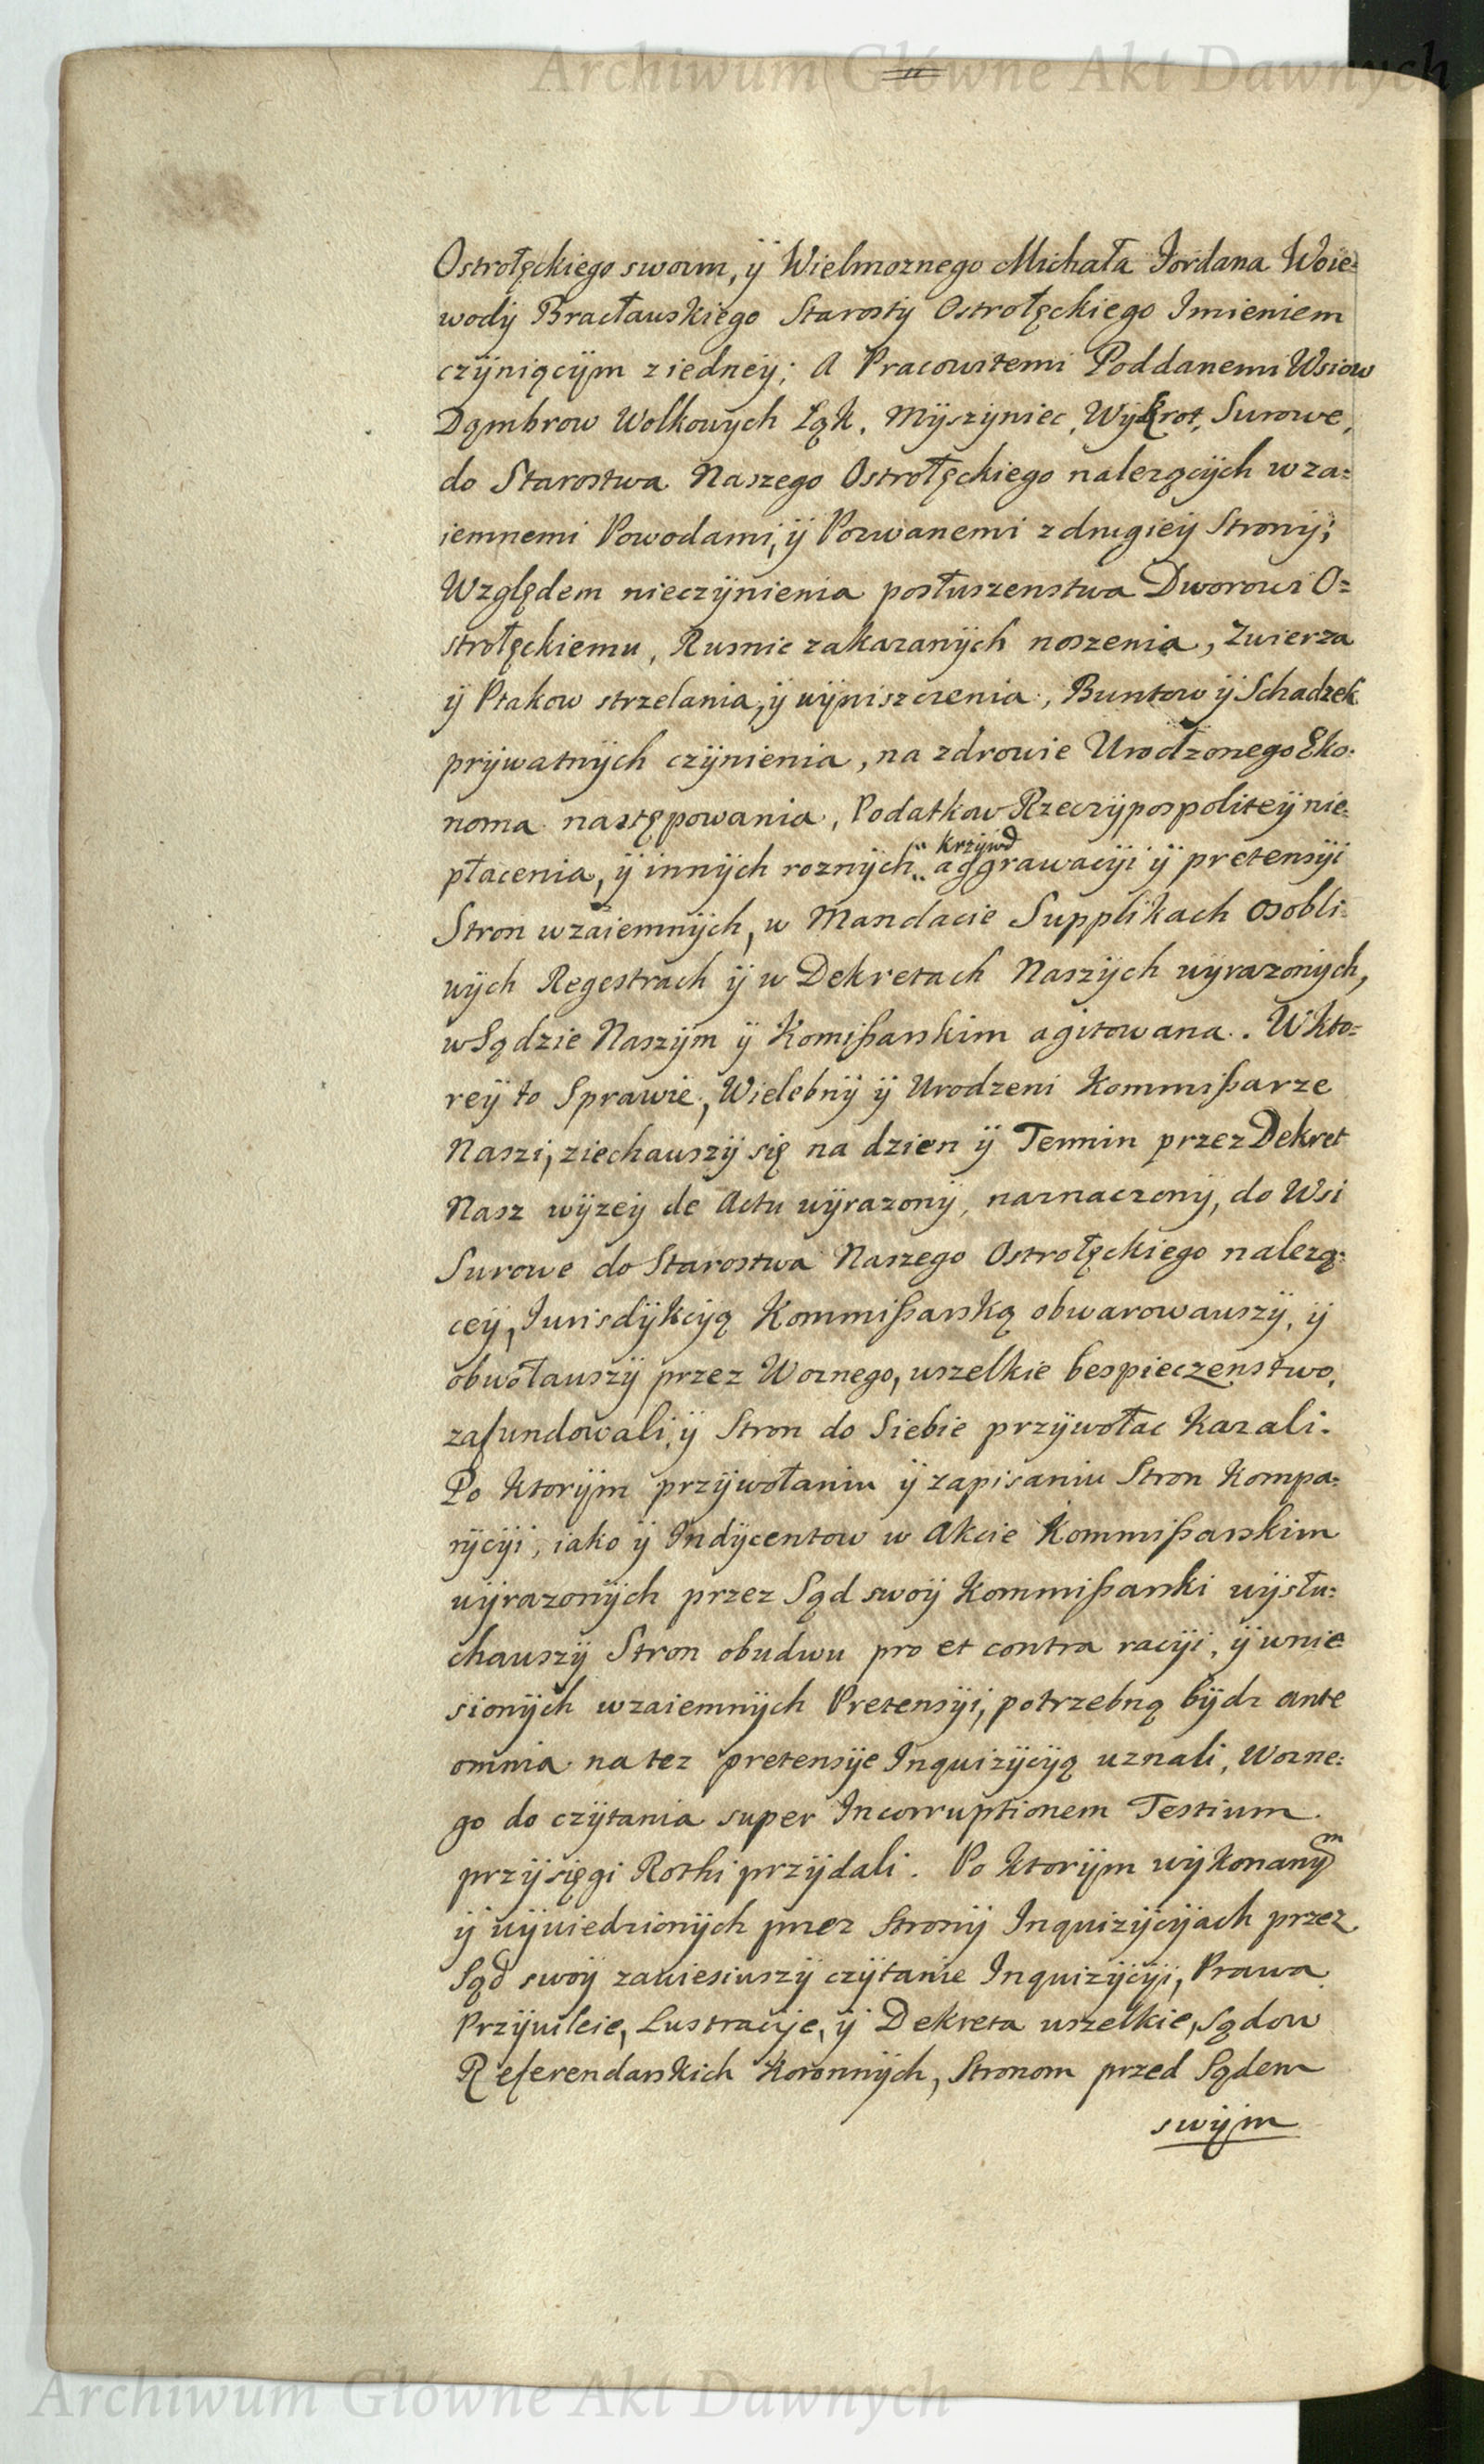 Archiwum Główne Akt Dawnych
Ostrołęckiego swoim, ÿ Wielmoznego Michała Jordana Woie=
wodÿ Bracławskiego Starostÿ Ostrołęckiego Imieniem
czÿniącÿm z iedneÿ; A Pracowitemi Poddanemi Wsiow
Dąmbrow Wolkowych Łąk, Mÿszÿniec, Wÿkrot, Surowe,
do Starostwa Naszego Ostrołęckiego nalezącÿch w za=
iemnemi Powodami, ÿ Pozwanemi z drugieÿ Stronÿ;
Względem nieczÿnienia posłuszenstwa Dworowi O=
strołęckiemu, Rusnic zakazanÿch noszenia, Zwierza
ÿ Ptakow strzelania, ÿ wÿniszczenia, Buntow ÿ Schadzek
prÿwatnÿch czÿnienia, na zdrowie Urodzonego Eko=
noma następowania, Podatkow Rzeczÿpospoliteÿ nie=
płacenia, ÿ innÿch roznÿch krzÿwd aggrawacÿi ÿ pretensÿi
Stron wzaiemnÿch, w Mandacie Supplikach osobli=
wÿch Regestrach ÿ w Dekretach Naszÿch wÿrazonÿch,
w Sądzie Naszÿm ÿ Komißarskim agitowana. W kto=
reÿ to Sprawie, Wielebnÿ ÿ Urodzeni Kommißarze
Naszi, ziechawszÿ się na dzien ÿ Termin przez Dekret
Nasz wÿzeÿ de Actu wÿrazonÿ, naznaczonÿ, do Wsi
Surowe do Starostwa Naszego Ostrołęckiego nalezą=
ceÿ, Jurisdÿkcÿą Kommißarską obwarowawszÿ, ÿ
obwoławszÿ przez Woznego, wszelkie bespieczenstwo,
zafundowali, ÿ Stron do Siebie przÿwołac kazali.
Po ktorÿm przÿwołaniu ÿ zapisaniu Stron kompa=
rÿcÿi, iako ÿ Indÿcentow w Akcie Kommißarskim
wÿrazonÿch przez Sąd swoÿ Kommißarski wÿsłu=
chawszÿ Stron obudwu pro et contra racÿi, ÿ wnie
sionÿch wzaiemnÿch Pretensÿi, potrzebną bÿdz ante
omnia na tez pretensÿe Inquizÿcÿą uznali, Wozne=
go do czÿtania super Incorruptionem Testium
przÿsięgi Rothi przÿdali. Po ktorÿm wÿkonanÿm
ÿ wÿwiedzionÿch przez Stronÿ Inquizÿcÿach przez
Sąd swoÿ zawiesiwszÿ czÿtanie Inquizÿcÿi, Prawa
Przÿwileie, Lustracÿe, ÿ Dekreta wszelkie, Sądow
Referendarskich Koronnÿch, Stronom przed Sądem
swÿm
Archiwum Główne Akt Dawnych